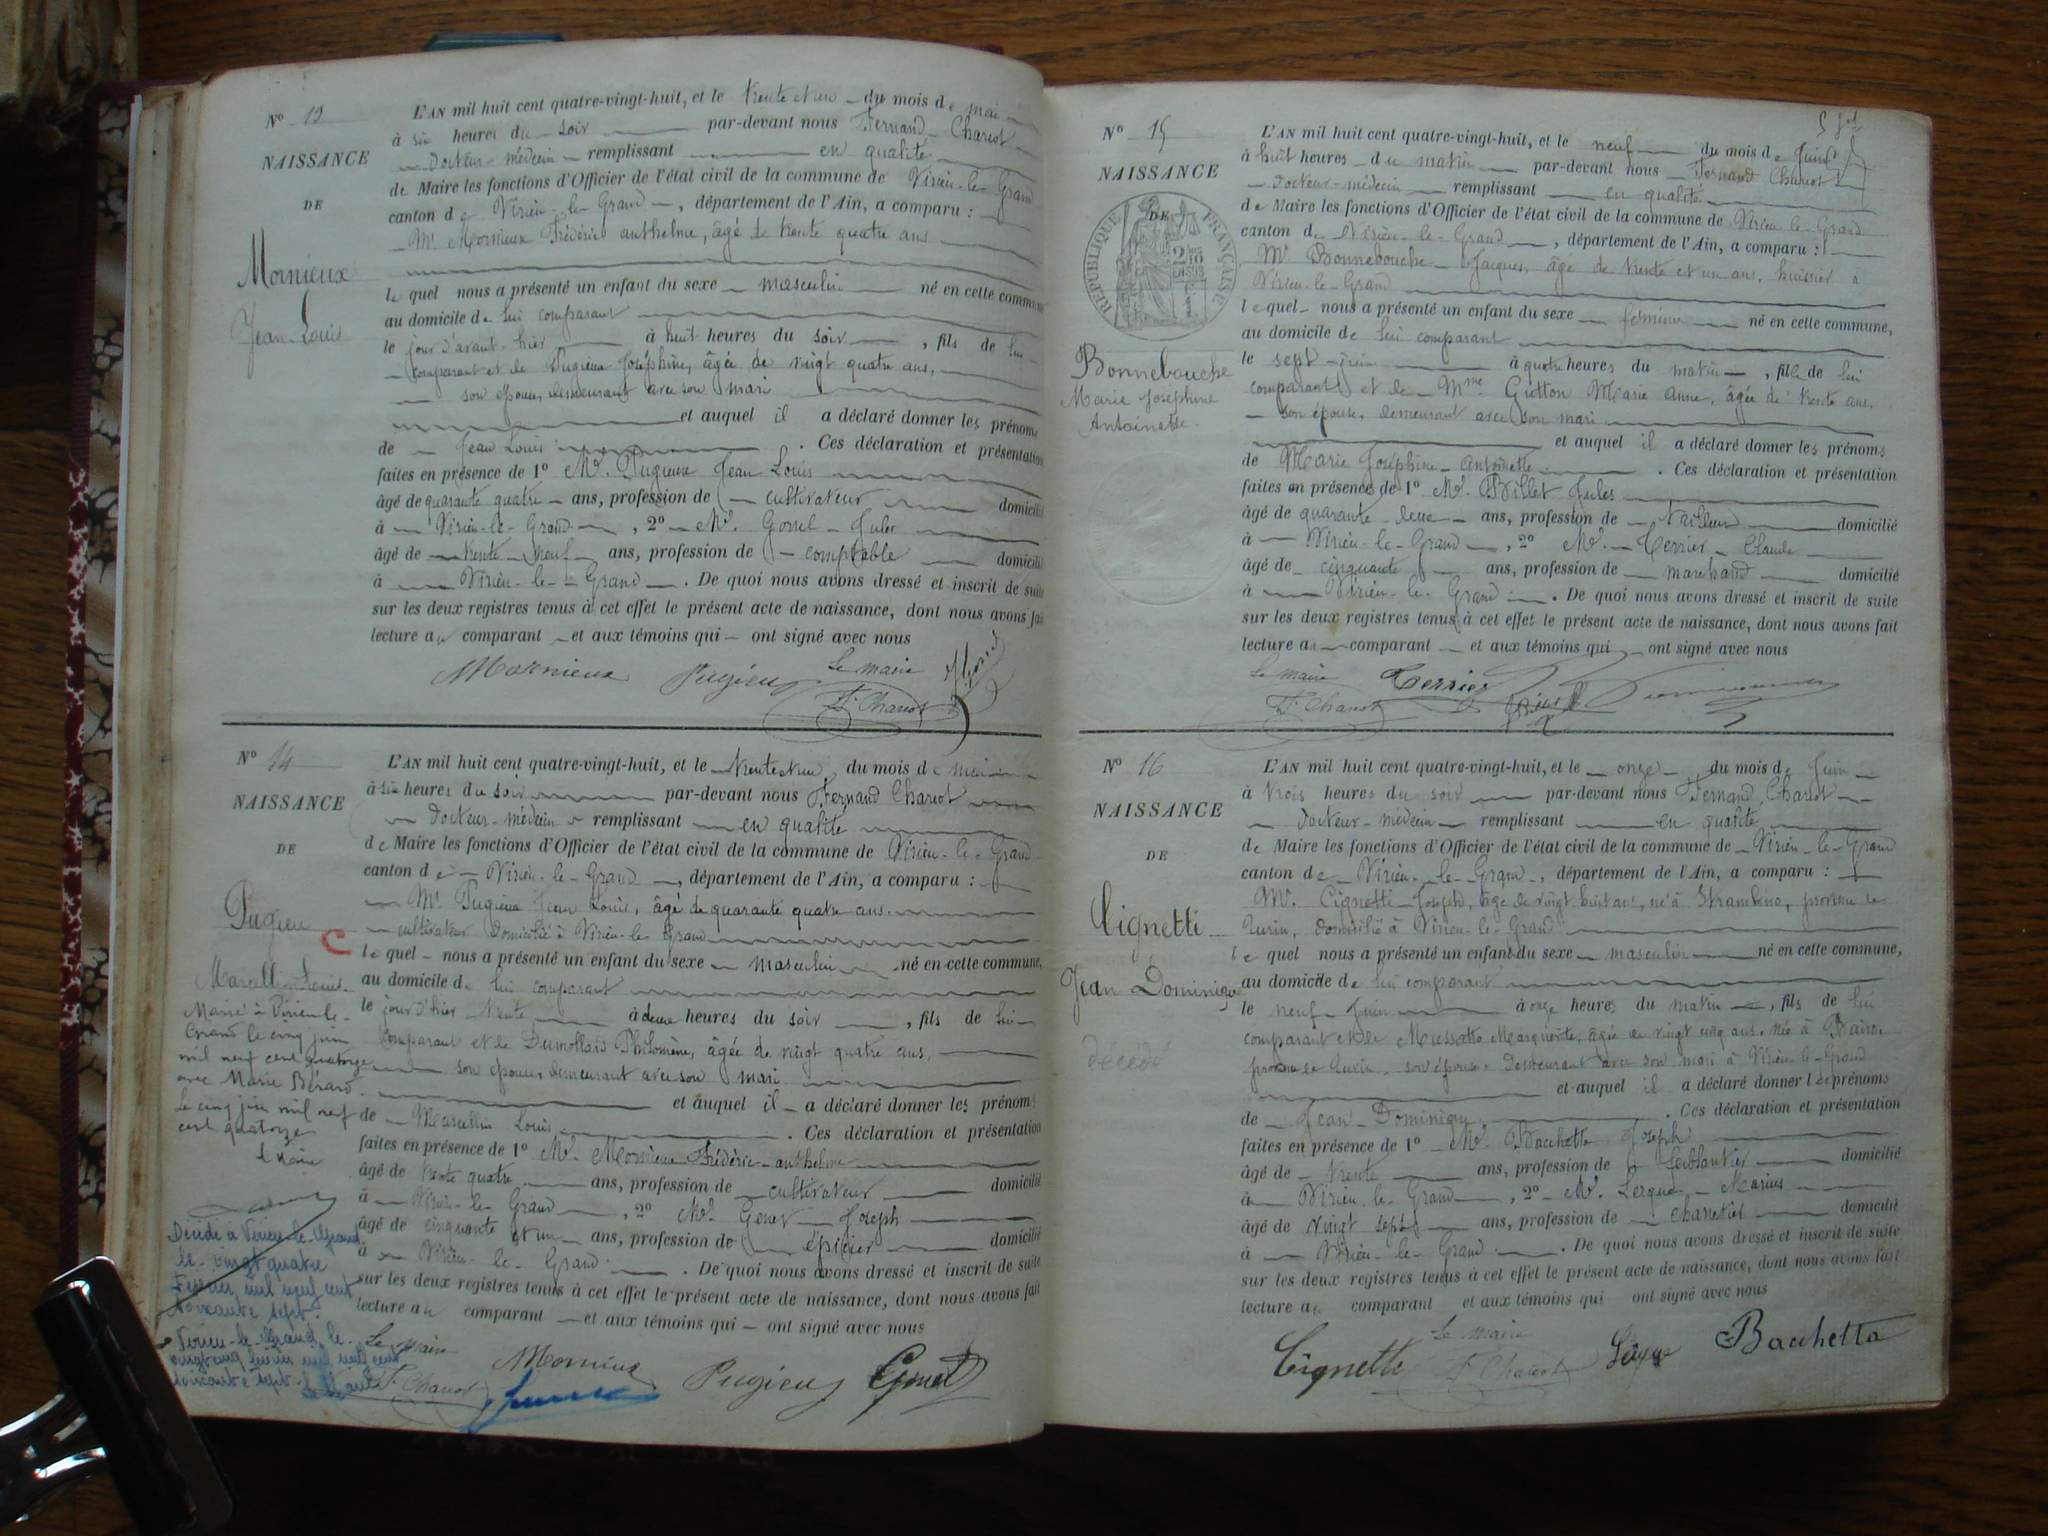 Nº 13
NAISSANCE
DE
Mornieux
Jean-Louis
L'AN mil huit cent quatre-vingt-huit, et le trente et un du mois de mai
à six heures du soir par-devant nous Fernand Charcot
Docteur-médecin remplissant en qualité
de Maire les fonctions d'Officier de l'état civil de la commune de Virieu-le-Grand
canton de Virieu-le-Grand, département de l'Ain, a comparu :
Mr Mornieux Frédéric anthelme, âgé de trente quatre ans
lequel nous a présenté un enfant du sexe masculin né en cette commune
au domicile de lui comparant
le jour d'avant-hier à huit heures du soir, fils de lui
comparant et de Pugieux Joséphine, âgée de vingt quatre ans,
son épouse, demeurant avec son mari
et auquel il a déclaré donner les prénoms
de Jean Louis. Ces déclaration et présentation
faites en présence de 1º Mr. Pugieux Jean Louis
âgé de quarante quatre ans, profession de cultivateur domicilié
à Virieu-le-Grand, 2º Mr. Jules
âgé de trente neuf ans, profession de comptable domicilié
à Virieu-le-Grand. De quoi nous avons dressé et inscrit de suite
sur les deux registres tenus à cet effet le présent acte de naissance, dont nous avons fait
lecture au comparant et aux témoins qui ont signé avec nous
Mornieux Pugieux Le maire
Dr. Charcot
Nº 14
NAISSANCE
DE
Pugieu
C
Marcellin Louis
Marié à Virieu-le-
Grand le cinq juin
mil neuf cent quatorze
avec Marie Bérard.
Le cinq juin mil neuf
cent quatorze
Le Maire
Décédé à Virieu-le-Grand
le vingt quatre
Février mil neuf cent
soixante sept.
Virieu-le-Grand le
vingt cinq février mil neuf cent
soixante sept. Le Maire
L'AN mil huit cent quatre-vingt-huit, et le trente et un du mois de mai
à six heures du soir par-devant nous Fernand Charcot
Docteur-médecin remplissant en qualité
de Maire les fonctions d'Officier de l'état civil de la commune de Virieu-le-Grand
canton de Virieu-le-Grand, département de l'Ain, a comparu :
Mr Pugieux Jean Louis, âgé de quarante quatre ans
cultivateur domicilié à Virieu-le-Grand
lequel nous a présenté un enfant du sexe masculin né en cette commune,
au domicile de lui comparant
le jour d'hier trente à deux heures du soir, fils de lui
comparant et de Dumollard Philomène, âgée de vingt quatre ans,
son épouse, demeurant avec son mari
et auquel il a déclaré donner les prénoms
de Marcellin Louis. Ces déclaration et présentation
faites en présence de 1º Mr. Mornieux Frédéric-anthelme
âgé de trente quatre ans, profession de cultivateur domicilié
à Virieu-le-Grand, 2º Mr. Genet Joseph
âgé de cinquante et un ans, profession de épicier domicilié
à Virieu-le-Grand. De quoi nous avons dressé et inscrit de suite
sur les deux registres tenus à cet effet le présent acte de naissance, dont nous avons fait
lecture au comparant et aux témoins qui ont signé avec nous
Le Maire
Dr. Charcot Mornieux Pugieux Genet
Nº 15
NAISSANCE
DE
RÉPUBLIQUE FRANÇAISE
Bonnebouche
Marie Joséphine
Antoinette.
L'AN mil huit cent quatre-vingt-huit, et le neuf du mois de Juin
à huit heures du matin par-devant nous Fernand Charcot
Docteur-médecin remplissant en qualité
de Maire les fonctions d'Officier de l'état civil de la commune de Virieu-le-Grand
canton de Virieu-le-Grand, département de l'Ain, a comparu :
Mr Bonnebouche Jacques, âgé de trente et un ans, huissier à
Virieu-le-Grand
lequel nous a présenté un enfant du sexe féminin né en cette commune,
au domicile de lui comparant
le sept juin à quatre heures du matin, fille de lui
comparant et de Mme Guitton Marie Anne, âgée de trente ans,
son épouse, demeurant avec son mari
et auquel il a déclaré donner les prénoms
de Marie Joséphine Antoinette. Ces déclaration et présentation
faites en présence de 1º Mr. Billet Jules
âgé de quarante deux ans, profession de tailleur domicilié
à Virieu-le-Grand, 2º Mr. Terrier Claude
âgé de cinquante ans, profession de marchand domicilié
à Virieu-le-Grand. De quoi nous avons dressé et inscrit de suite
sur les deux registres tenus à cet effet le présent acte de naissance, dont nous avons fait
lecture au comparant et aux témoins qui ont signé avec nous
Le maire Terrier
Dr. Charcot
Nº 16
NAISSANCE
DE
Cignetti
Jean Dominique
décédé
L'AN mil huit cent quatre-vingt-huit, et le onze du mois de Juin
à trois heures du soir par-devant nous Fernand Charcot
Docteur-médecin remplissant en qualité
de Maire les fonctions d'Officier de l'état civil de la commune de Virieu-le-Grand
canton de Virieu-le-Grand, département de l'Ain, a comparu :
Mr. Cignetti Joseph, âgé de vingt huit ans, né à Strambino, province de
Turin, domicilié à Virieu-le-Grand
lequel nous a présenté un enfant du sexe masculin né en cette commune,
au domicile de lui comparant
le neuf Juin à onze heures du matin, fils de lui
comparant et de Mussatto Marguerite, âgée de vingt cinq ans, née à Bairo,
province de Turin, son épouse, demeurant avec son mari à Virieu-le-Grand
et auquel il a déclaré donner les prénoms
de Jean-Dominique. Ces déclaration et présentation
faites en présence de 1º Mr. Bacchetta Joseph
âgé de trente ans, profession de ferblantier domicilié
à Virieu-le-Grand, 2º Mr. Marius
âgé de vingt sept ans, profession de domicilié
à Virieu-le-Grand. De quoi nous avons dressé et inscrit de suite
sur les deux registres tenus à cet effet le présent acte de naissance, dont nous avons fait
lecture au comparant et aux témoins qui ont signé avec nous
Cignetti Le maire Bacchetta
Dr. Charcot